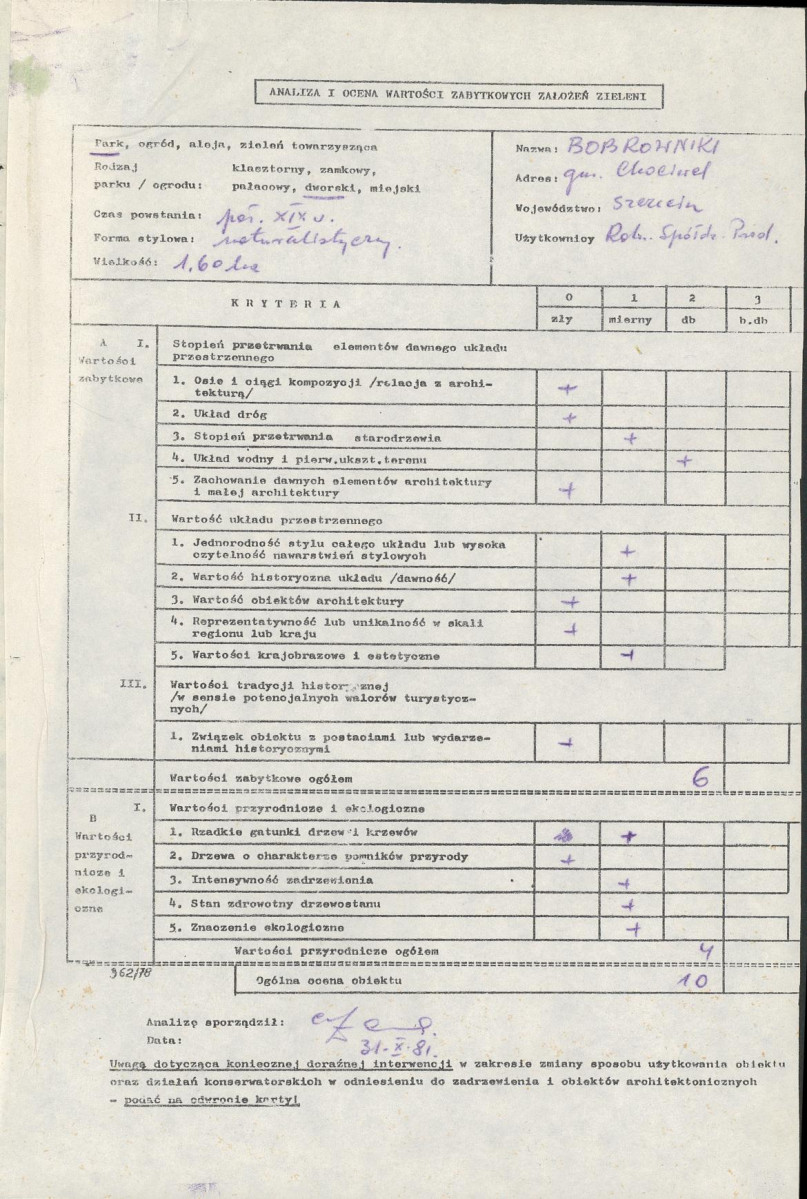 ANALIZA I OCENA WARTOŚCI ZABYTKOWYCH ZAŁOŻEŃ ZIELENI
Park, ogród, aleja, zieleń towarzysząca
Rodzaj klasztorny, zamkowy,
parku / ogrodu: pałacowy, dworski, miejski
Czas powstania: poł. XIX w.
Forma stylowa: naturalistyczny.
Wielkość: 1,60 ha
Nazwa: BOBROWNIKI
Adres: gm. Chociwel
Województwo: Szczecin
Użytkownicy Roln. Spółdz. Prod.
KRYTERIA 0 1 2 3
zły mierny db b.db
A I. Stopień przetrwania elementów dawnego układu
Wartości przestrzennego
zabytkowe
1. Osie i ciągi kompozycji /relacja z archi-
tekturą/ +
2. Układ dróg +
3. Stopień przetrwania starodrzewia +
4. Układ wodny i pierw.ukszt.terenu +
5. Zachowanie dawnych elementów architektury
i małej architektury +
II. Wartość układu przestrzennego
1. Jednorodność stylu całego układu lub wysoka
czytelność nawarstwień stylowych +
2. Wartość historyczna układu /dawność/ +
3. Wartość obiektów architektury +
4. Reprezentatywność lub unikalność w skali
regionu lub kraju +
5. Wartości krajobrazowe i estetyczne +
III. Wartości tradycji historycznej
/w sensie potencjalnych walorów turystycz-
nych/
1. Związek obiektu z postaciami lub wydarze-
niami historycznymi +
Wartości zabytkowe ogółem 6
B I. Wartości przyrodnicze i ekologiczne
Wartości
przyrod-
nicze i
ekologi-
czne
1. Rzadkie gatunki drzew i krzewów +
2. Drzewa o charakterze pomników przyrody +
3. Intensywność zadrzewienia +
4. Stan zdrowotny drzewostanu +
5. Znaczenie ekologiczne +
Wartości przyrodnicze ogółem 4
362/78
Ogólna ocena obiektu 10
Analizę sporządził:
Data: 31-X-81.
Uwaga dotycząca koniecznej doraźnej interwencji w zakresie zmiany sposobu użytkowania obiektu
oraz działań konserwatorskich w odniesieniu do zadrzewienia i obiektów architektonicznych
- podać na odwrocie karty!